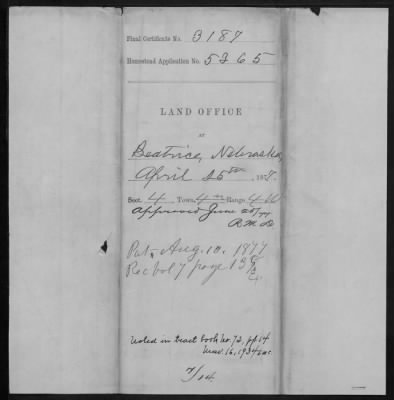 Final Certificate No. 3187
Homestead Application No. 5265
LAND OFFICE
AT
Beatrice, Nebraska,
April 25th, 187
Sect. 4 Town. 4 Range. 4
Approved June 25/77
Pat. Aug. 10, 1877
Rec vol 7 page
Noted in tract book No. 72, pp 14
Mar. 16, 1934
7/14